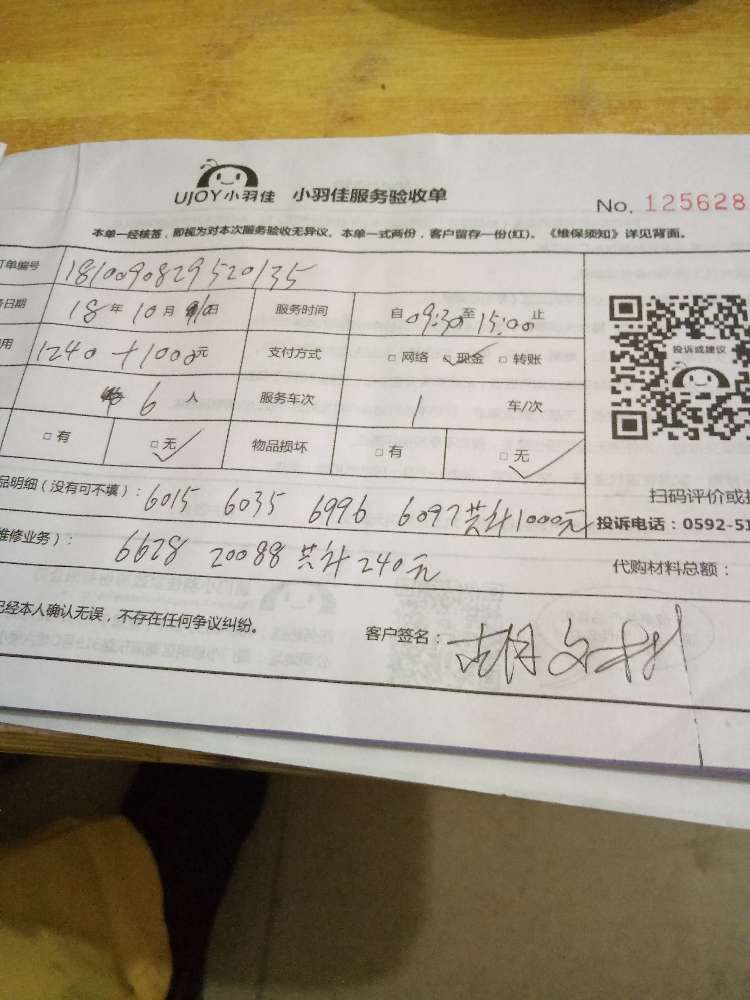 UJOY小羽佳 小羽佳服务验收单
No. 125628
本单一经核签，即视为对本次服务验收无异议。本单一式两份，客户留存一份(红)。《维保须知》详见背面。
订单编号 1810090829520135
务日期 18年10月 日 服务时间 自09:30至15:00止
用 1240+1000元 支付方式 □网络 ☑现金 □转账
投诉或建议
6人 服务车次 1 车/次
□有 ☑无 物品损坏 □有 ☑无
品明细（没有可不填）：6015 6035 6996 6097共计1000元
扫码评价或投
投诉电话：0592-51
维修业务）： 6628 20088共计240元 代购材料总额：
已经本人确认无误，不存在任何争议纠纷。 客户签名：胡文